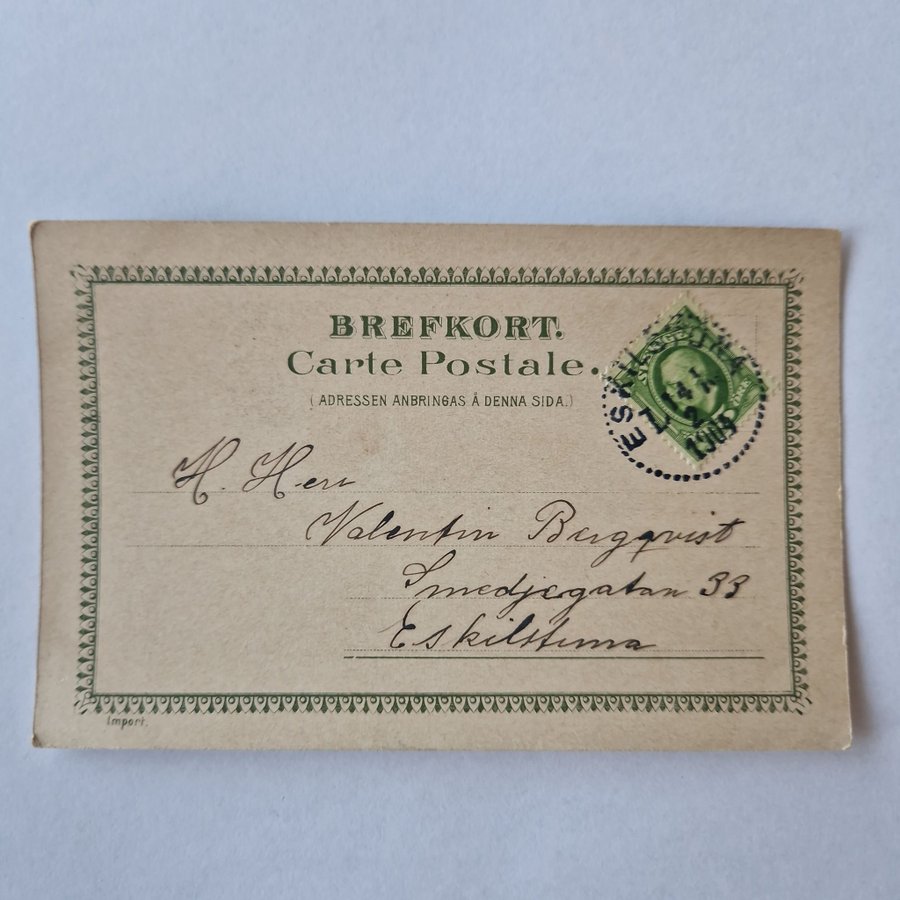 BREFKORT.
Carte Postale.
(ADRESSEN ANBRINGAS Å DENNA SIDA.)
ESKILSTUNA
14
2
1903
H. Herr
Valentin Bergqvist
Smedjegatan 33
Eskilstuna
Import.